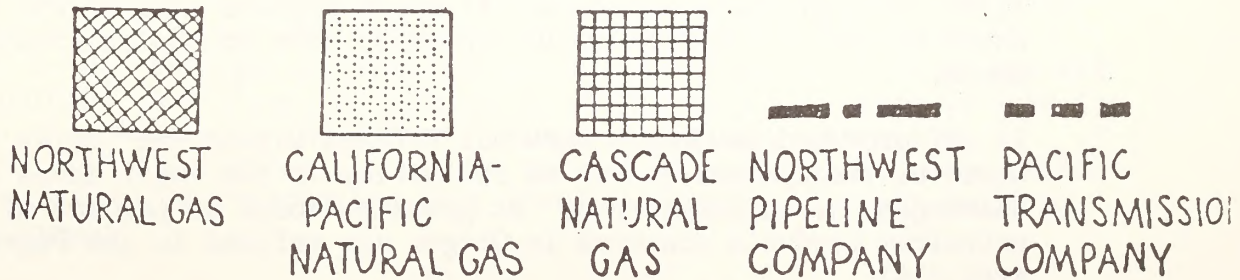 NORTHWEST
NATURAL GAS
CALIFORNIA-
PACIFIC
NATURAL GAS
CASCADE
NATURAL
GAS
NORTHWEST
PIPELINE
COMPANY
PACIFIC
TRANSMISSIO
COMPANY